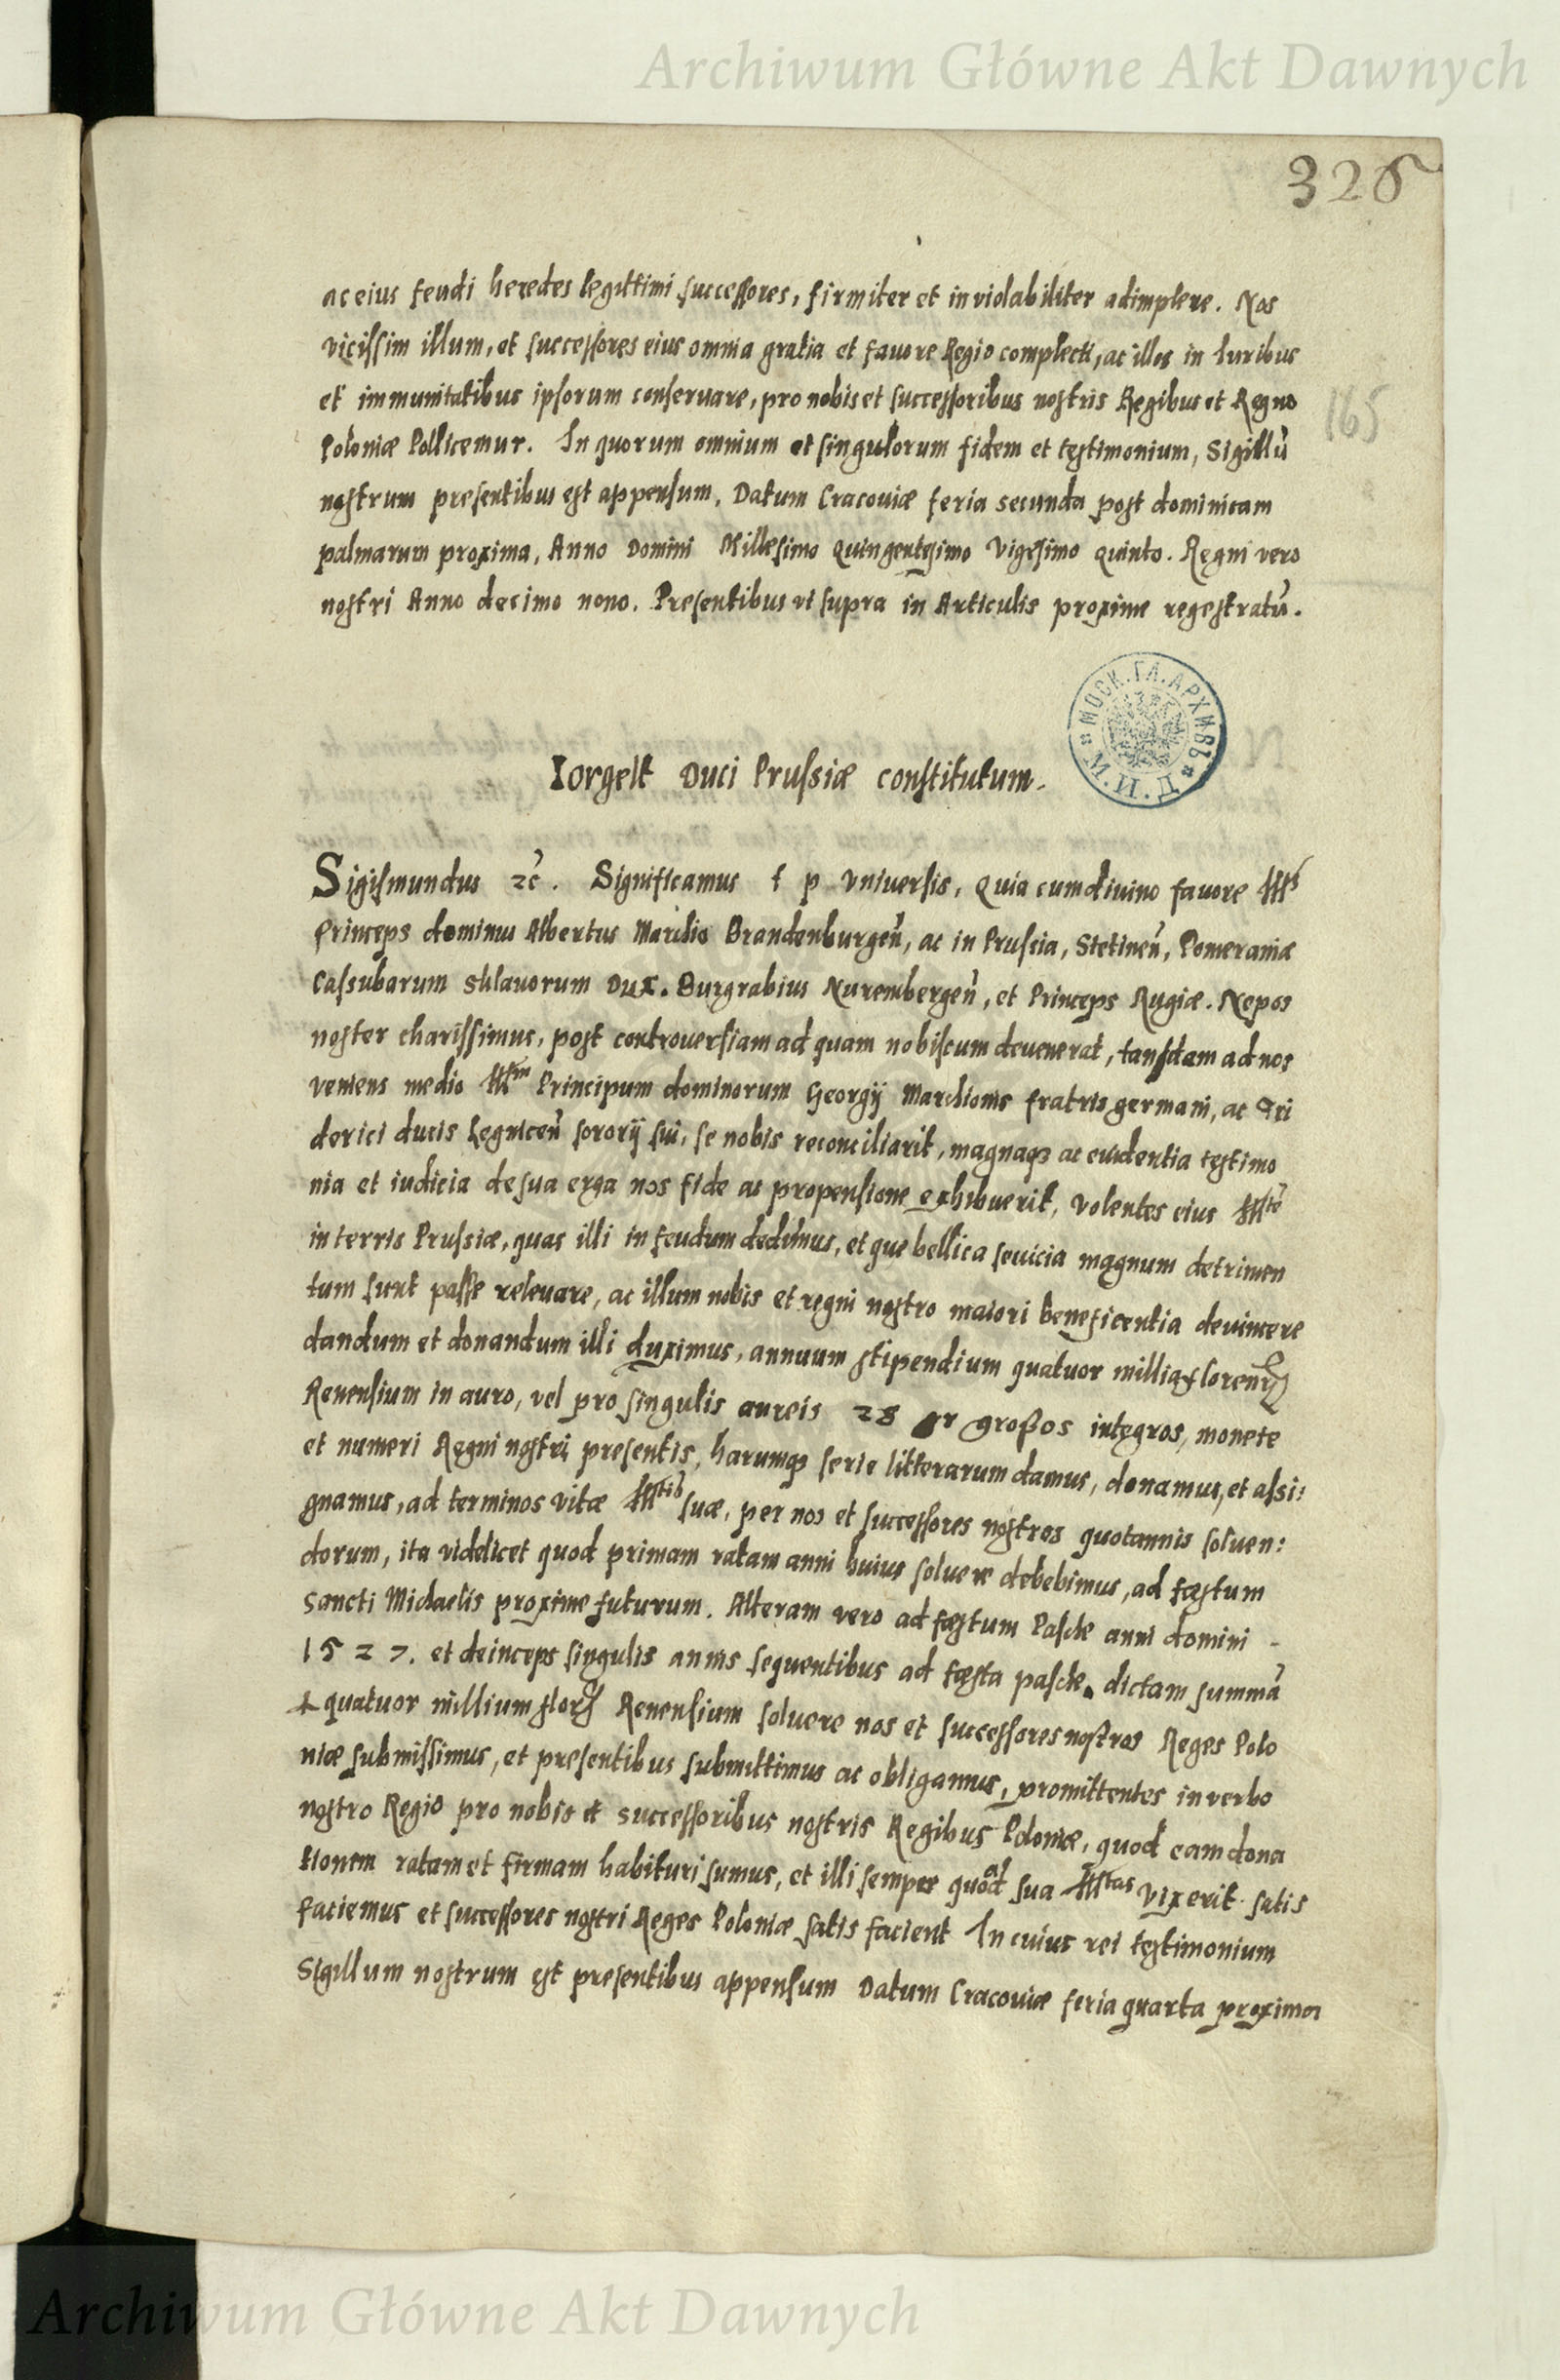 Archiwum Główne Akt Dawnych
326
ac eius feudi heredes legittimi successores, firmiter et inviolabiliter adimplere. Nos
vicissim illum, et successores eius omnia gratia et favore Regio complecti, ac illos in Iuribus
et immunitatibus ipsorum conservare, pro nobis et successoribus nostris Regibus et Regno
165
Poloniæ Pollicemur. In quorum omnium et singulorum fidem et testimonium, Sigillū
nostrum presentibus est appensum. Datum Cracoviæ feria secunda post dominicam
palmarum proxima, Anno Domini Millesimo Quingentesimo Vigesimo quinto. Regni vero
nostri Anno decimo nono. Presentibus vt supra in Articulis proxime regestratū.
МОСК. ГЛ. АРХИВЪ М. И. Д.
Iorgelt Duci Prussiæ constitutum.
Sigismundus ꝛc̄. Significamus t p Vniversis, Quia cum divino favore Illꝭ
Princeps dominus Albertus Marchio Brandenburgen̄, ac in Prussia, Stetinen̄, Pomeraniæ
Cassubarum Sklavorum Dux. Burgrabius Nurembergen̄, et Princeps Rugiæ. Nepos
noster charissimus, post controversiam ad quam nobiscum devenerat, tandam ad nos
veniens medio Illm Principum dominorum Georgij Marchionis fratris germani, ac Fri
derici ducis Legnicen̄ sororij sui, se nobis reconciliarit, magnaqꝫ ac evidentia testimo
nia et iudicia de sua erga nos fide ac propensione exhibuerit, Volentes eius Illte
in terris Prussiæ, quas illi in feudum dedimus, et que bellica sevicia magnum detrimen
tum sunt passe relevare, ac illum nobis et regni nostro maiori beneficentia devincere
dandum et donandum illi duximus, annuum stipendium quatuor millia florenꝝ
Renensium in auro, vel pro singulis aureis 28 gr grossos integros, monete
et numeri Regni nostri presentis, harumqꝫ serie litterarum damus, donamus, et assi:
gnamus, ad terminos vitæ Illtis suæ, per nos et successores nostros quotannis solven:
dorum, ita videlicet quod primam ratam anni huius solvere debebimus, ad festum
Sancti Michaelis proxime futurum. Alteram vero ad festum Pasche anni domini
1527. et deinceps singulis annis sequentibus ad festa pasche dictam summā
quatuor millium florꝝ Renensium solvere nos et successores nostros Reges Polo
niæ submissimus, et presentibus submittimus ac obligamus, promittentes in verbo
nostro Regio pro nobis et successoribus nostris Regibus Poloniæ, quod eam dona
tionem ratam et firmam habituri sumus, et illi semper quoad sua Illtas vixerit satis
faciemus et successores nostri Reges Poloniæ satis facient In cuius rei testimonium
Sigillum nostrum est presentibus appensum Datum Cracoviæ feria quarta proxima
Archiwum Główne Akt Dawnych